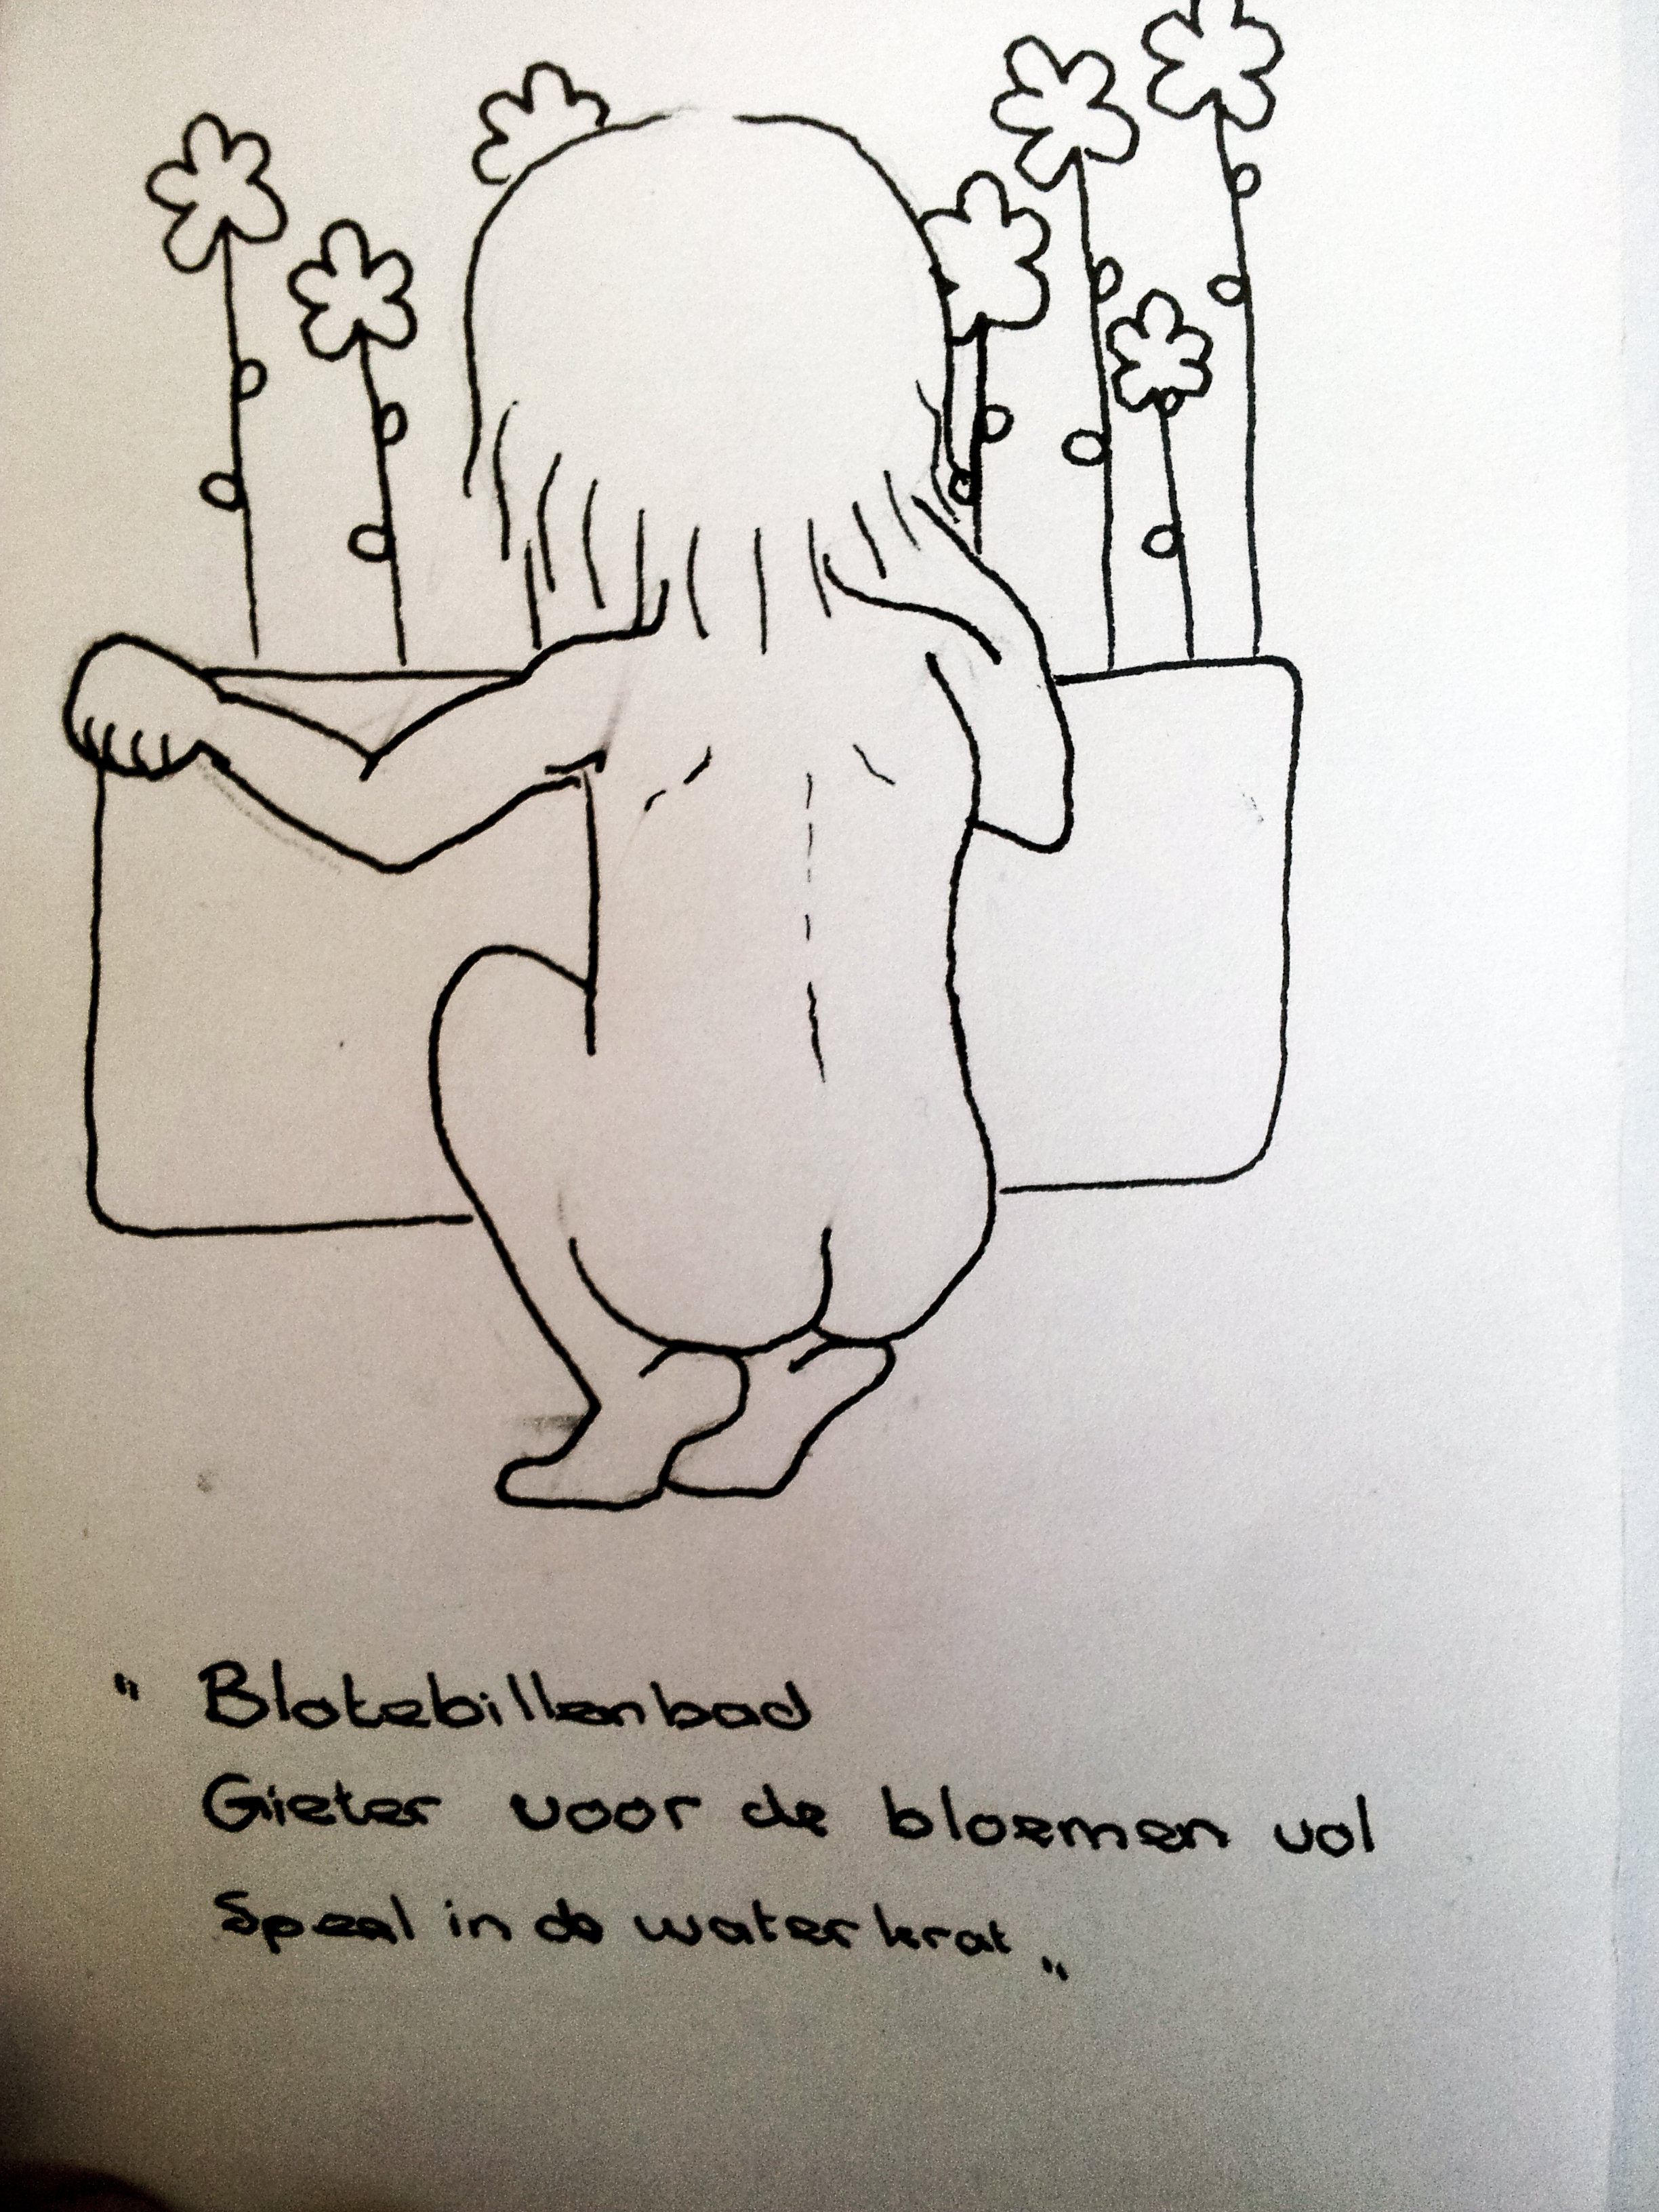 " Blotebillenbad
Gieter voor de bloemen vol
Speel in de waterkrat "